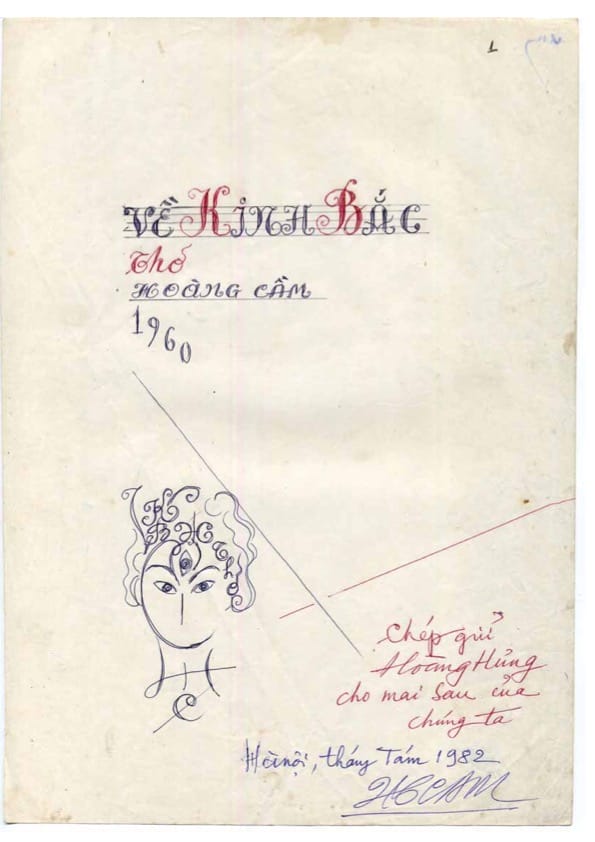 1
VỀ KINH BẮC
Thơ
HOÀNG CẦM
1960
Chép gửi
Hoàng Hưng
cho mai sau của
chúng ta
Hà nội, tháng Tám 1982
HCCAM